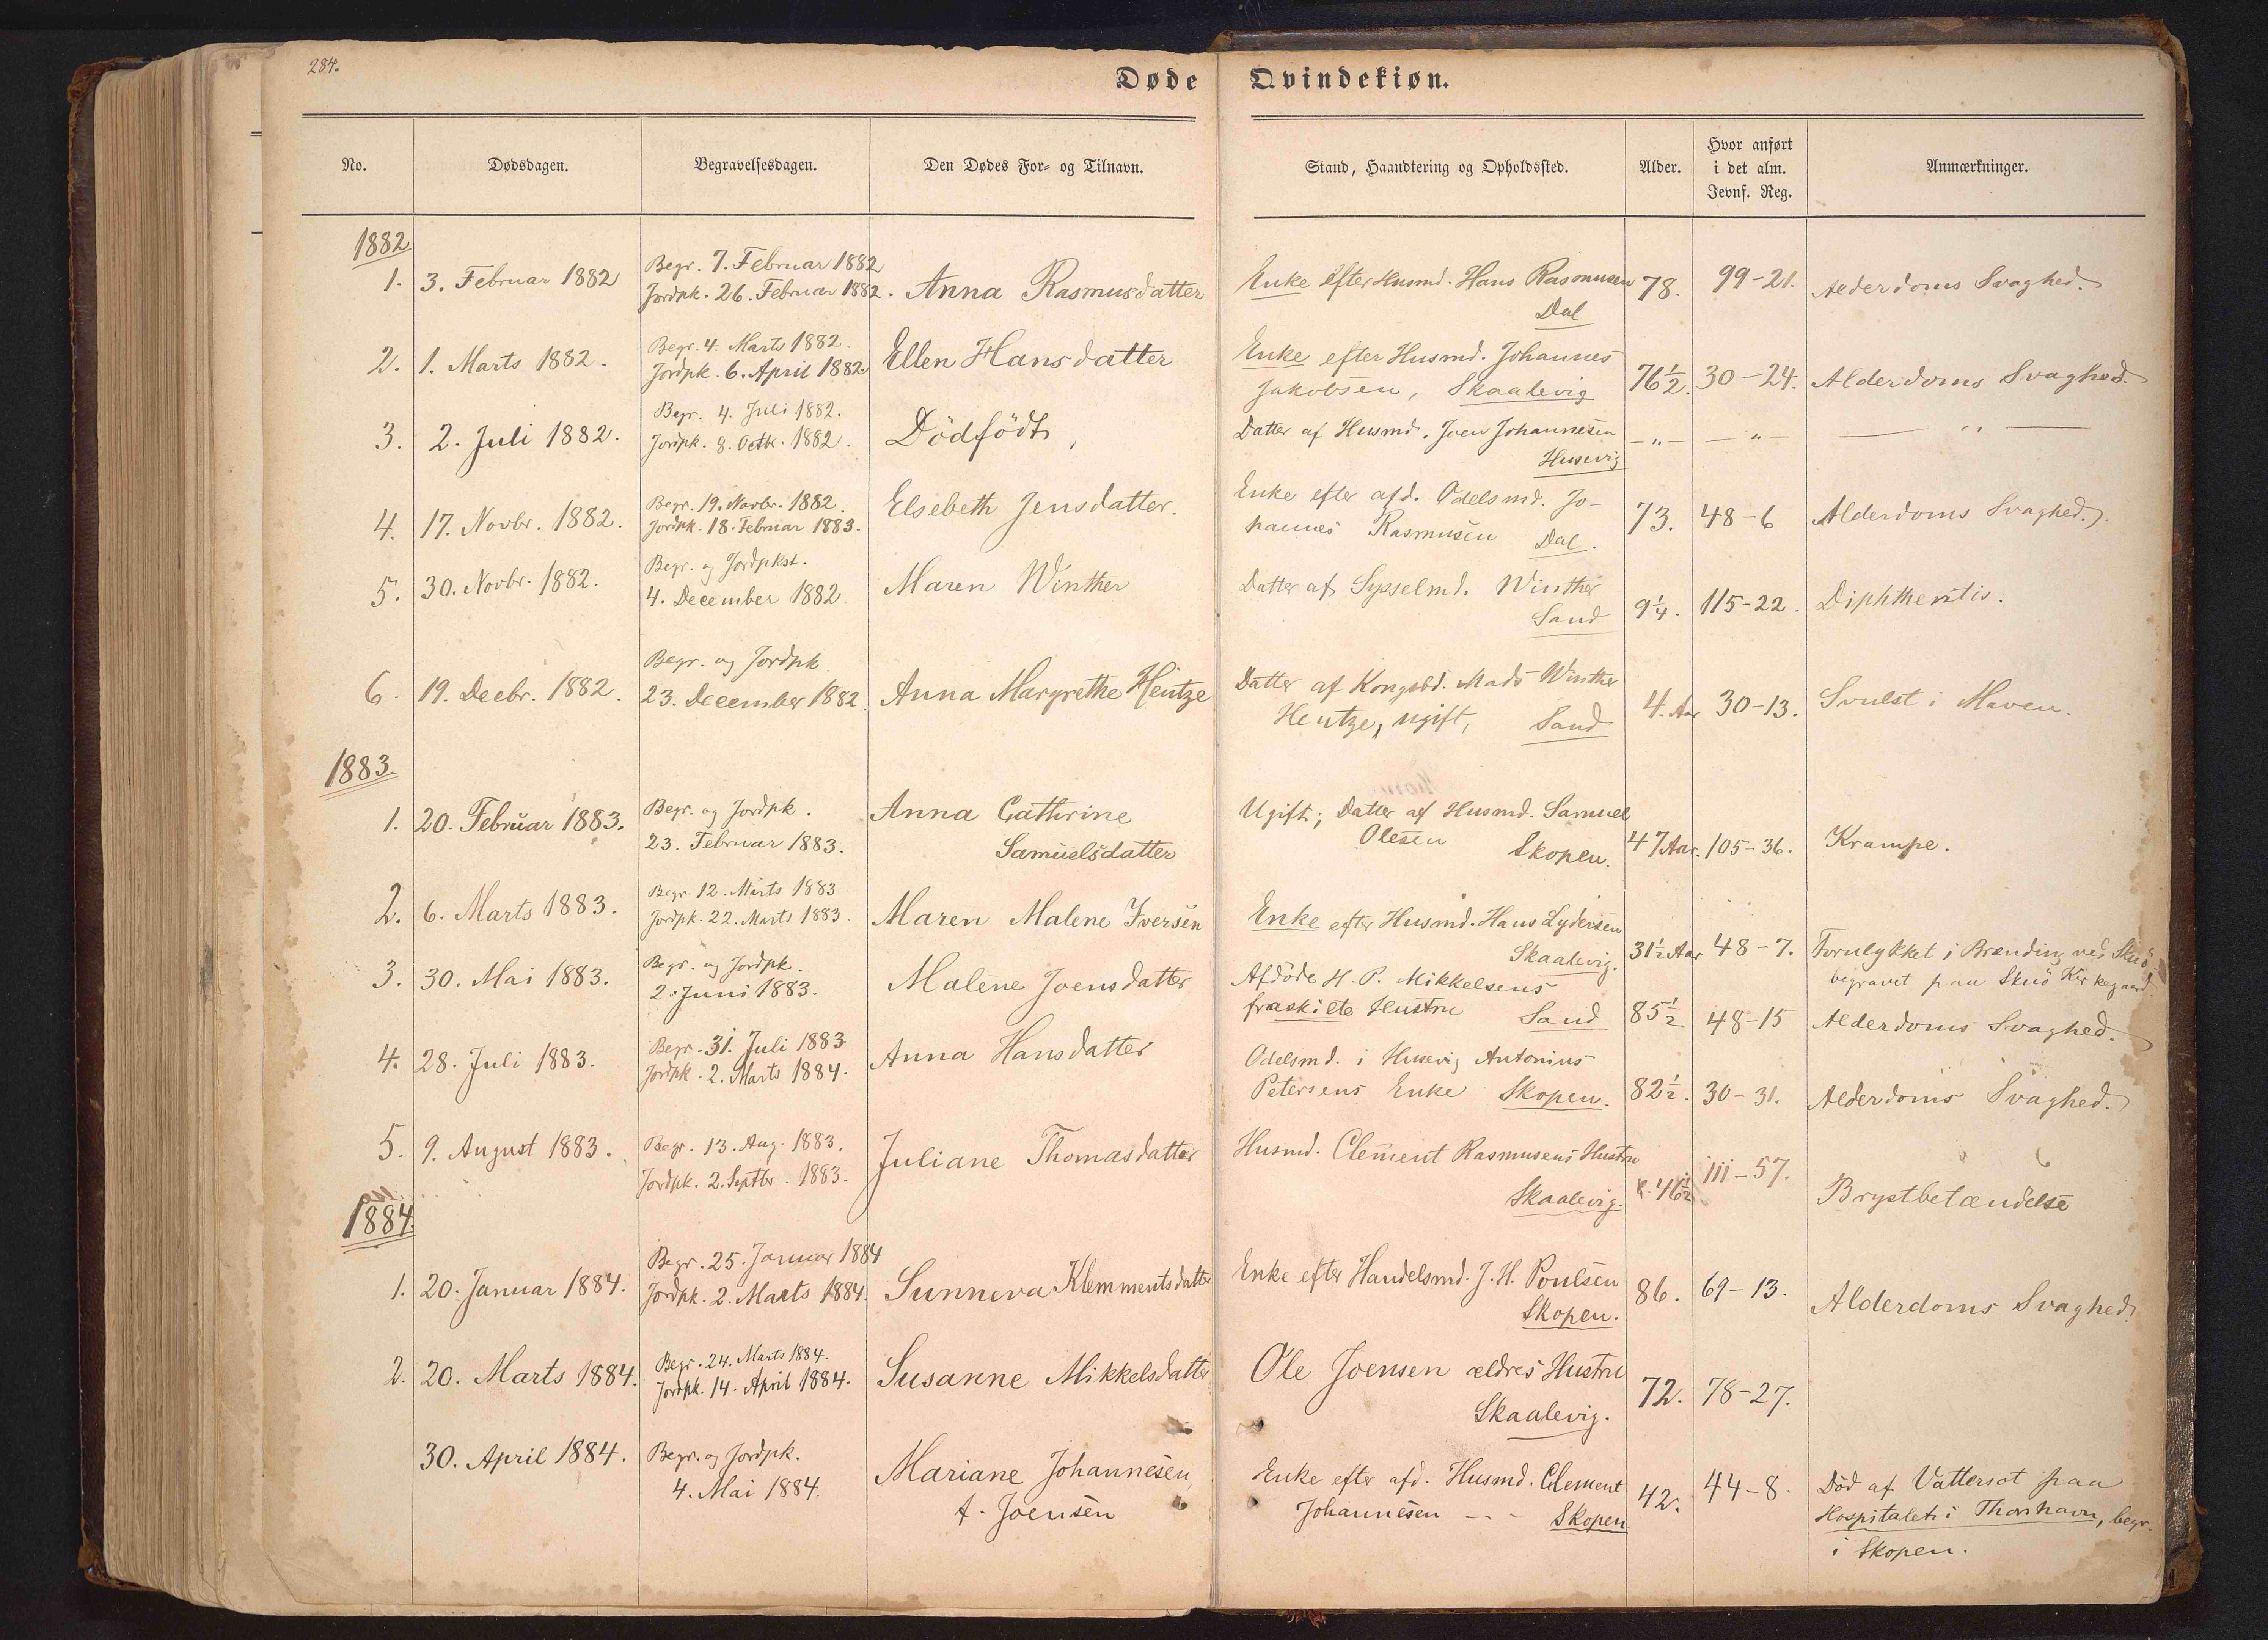 284.
Døde Qvindekiøn.
No. Dødsdagen. Begravelsesdagen. Den Dødes For- og Tilnavn. Stand, Haandtering og Opholdssted. Alder. Hvor anført i det alm. Jevnf. Reg. Anmærkninger.
1882
1. 3. Februar 1882 Begr. 7. Februar 1882 Jordpk. 26. Februar 1882. Anna Rasmusdatter Enke efter Husmd. Hans Rasmusen Dal 78. 99-21. Alderdoms Svaghed.
2. 1. Marts 1882. Begr. 4. Marts 1882. Jordpk. 6. April 1882 Ellen Hansdatter Enke efter Husmd. Johannes Jakobsen, Skaalevig 76½. 30-24. Alderdoms Svaghed.
3. 2. Juli 1882. Begr. 4. Juli 1882. Jordpk. 8. Octbr. 1882. Dödfödt, Datter af Husmd. Joen Johannesen Husevig -"- -"- -"-
4. 17. Novbr. 1882. Begr. 19. Novbr. 1882. Jordpk. 18. Februar 1883. Elsebeth Jensdatter. Enke efter afd. Odelsmd. Jo-
hannes Rasmusen Dal. 73. 48-6 Alderdoms Svaghed.
5. 30. Novbr. 1882. Begr. og Jordpkst. 4. December 1882 Maren Winther Datter af Sysselmd. Winther Sand 9¼. 115-22. Diphtheritis.
6. 19. Decbr. 1882. Begr. og Jordpk. 23. December 1882. Anna Margrethe Heintze Datter af Kongsbd. Mads Winther Heintze, ugift, Sand 4. Aar 30-13. Svulst i Maven.
1883.
1. 20. Februar 1883. Begr. og Jordpk. 23. Februar 1883. Anna Cathrine Samuelsdatter Ugift; Datter af Husmd. Samuel Olesen Skopen. 47 Aar. 105-36. Krampe.
2. 6. Marts 1883. Begr. 12. Marts 1883 Jordpk. 22. Marts 1883. Maren Malene Iversen Enke efter Husmd. Hans Lydersen Skaalevig. 31½ Aar 48-7. Forulykket i Brending ved Skuö begravet paa Skuö Kirkegaard.
3. 30. Mai 1883. Begr. og Jordpk. 2. Juni 1883. Malene Joensdatter Afdöde H. P. Mikkelsens fraskilte Hustru Sand 85½ 48-15 Alderdoms Svaghed.
4. 28. Juli 1883. Begr. 31. Juli 1883 Jordpk. 2. Marts 1884. Anna Hansdatter Odelsmd. i Husevig Antonius Petersens Enke Skopen. 82½. 30-31. Alderdoms Svaghed.
5. 9. August 1883. Begr. 13. Aug. 1883. Jordpk. 2. Septbr. 1883. Juliane Thomasdatter Husmd. Clement Rasmusens Hustru Skaalevig. 46½ 111-57. Brystbetændelse
1884.
1. 20. Januar 1884. Begr. 25. Januar 1884 Jordpk. 2. Marts 1884. Sunneva Klemmentsdatter Enke efter Handelsmd. J. H. Poulsen Skopen. 86. 69-13. Alderdoms Svaghed.
2. 20. Marts 1884. Begr. 24. Marts 1884. Jordpk. 14. April 1884. Susanne Mikkelsdatter Ole Joensen ældres Hustru Skaalevig. 72. 78-27.
30. April 1884. Begr. og Jordpk. 4. Mai 1884. Mariane Johannesen f. Joensen Enke efter afd. Husmd. Clement Johannesen - - - Skopen 42. 44-8. Död af Vattersot paa Hospitalet i Thorshavn, begr. i Skopen.